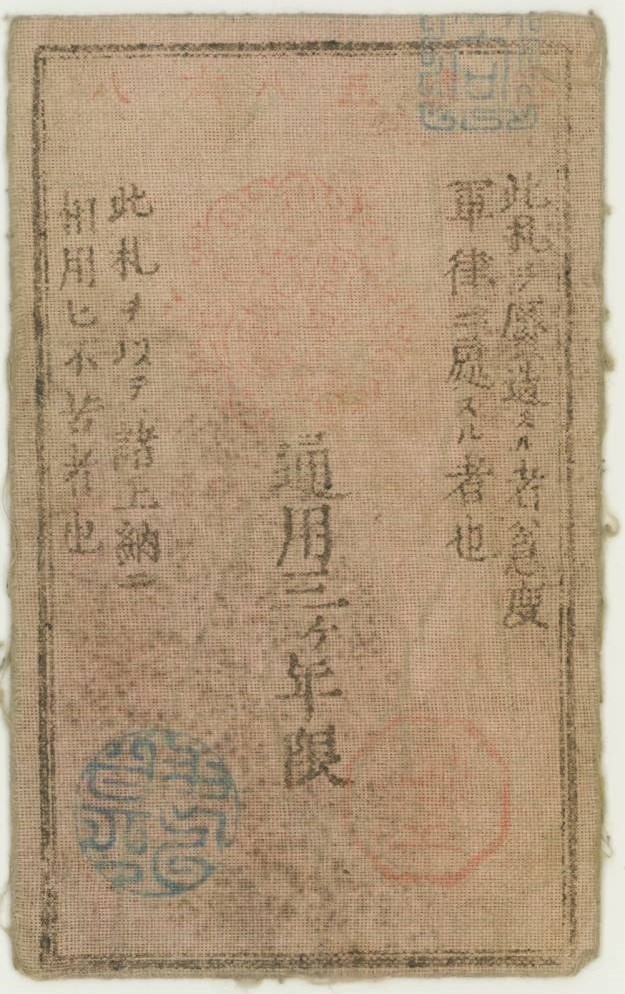 五八六八
此札ヲ贋造スル者ハ急度
軍律ニ処スル者也
通用三ケ年限
此札ヲ以テ諸上納ニ
相用ヒ不苦者也